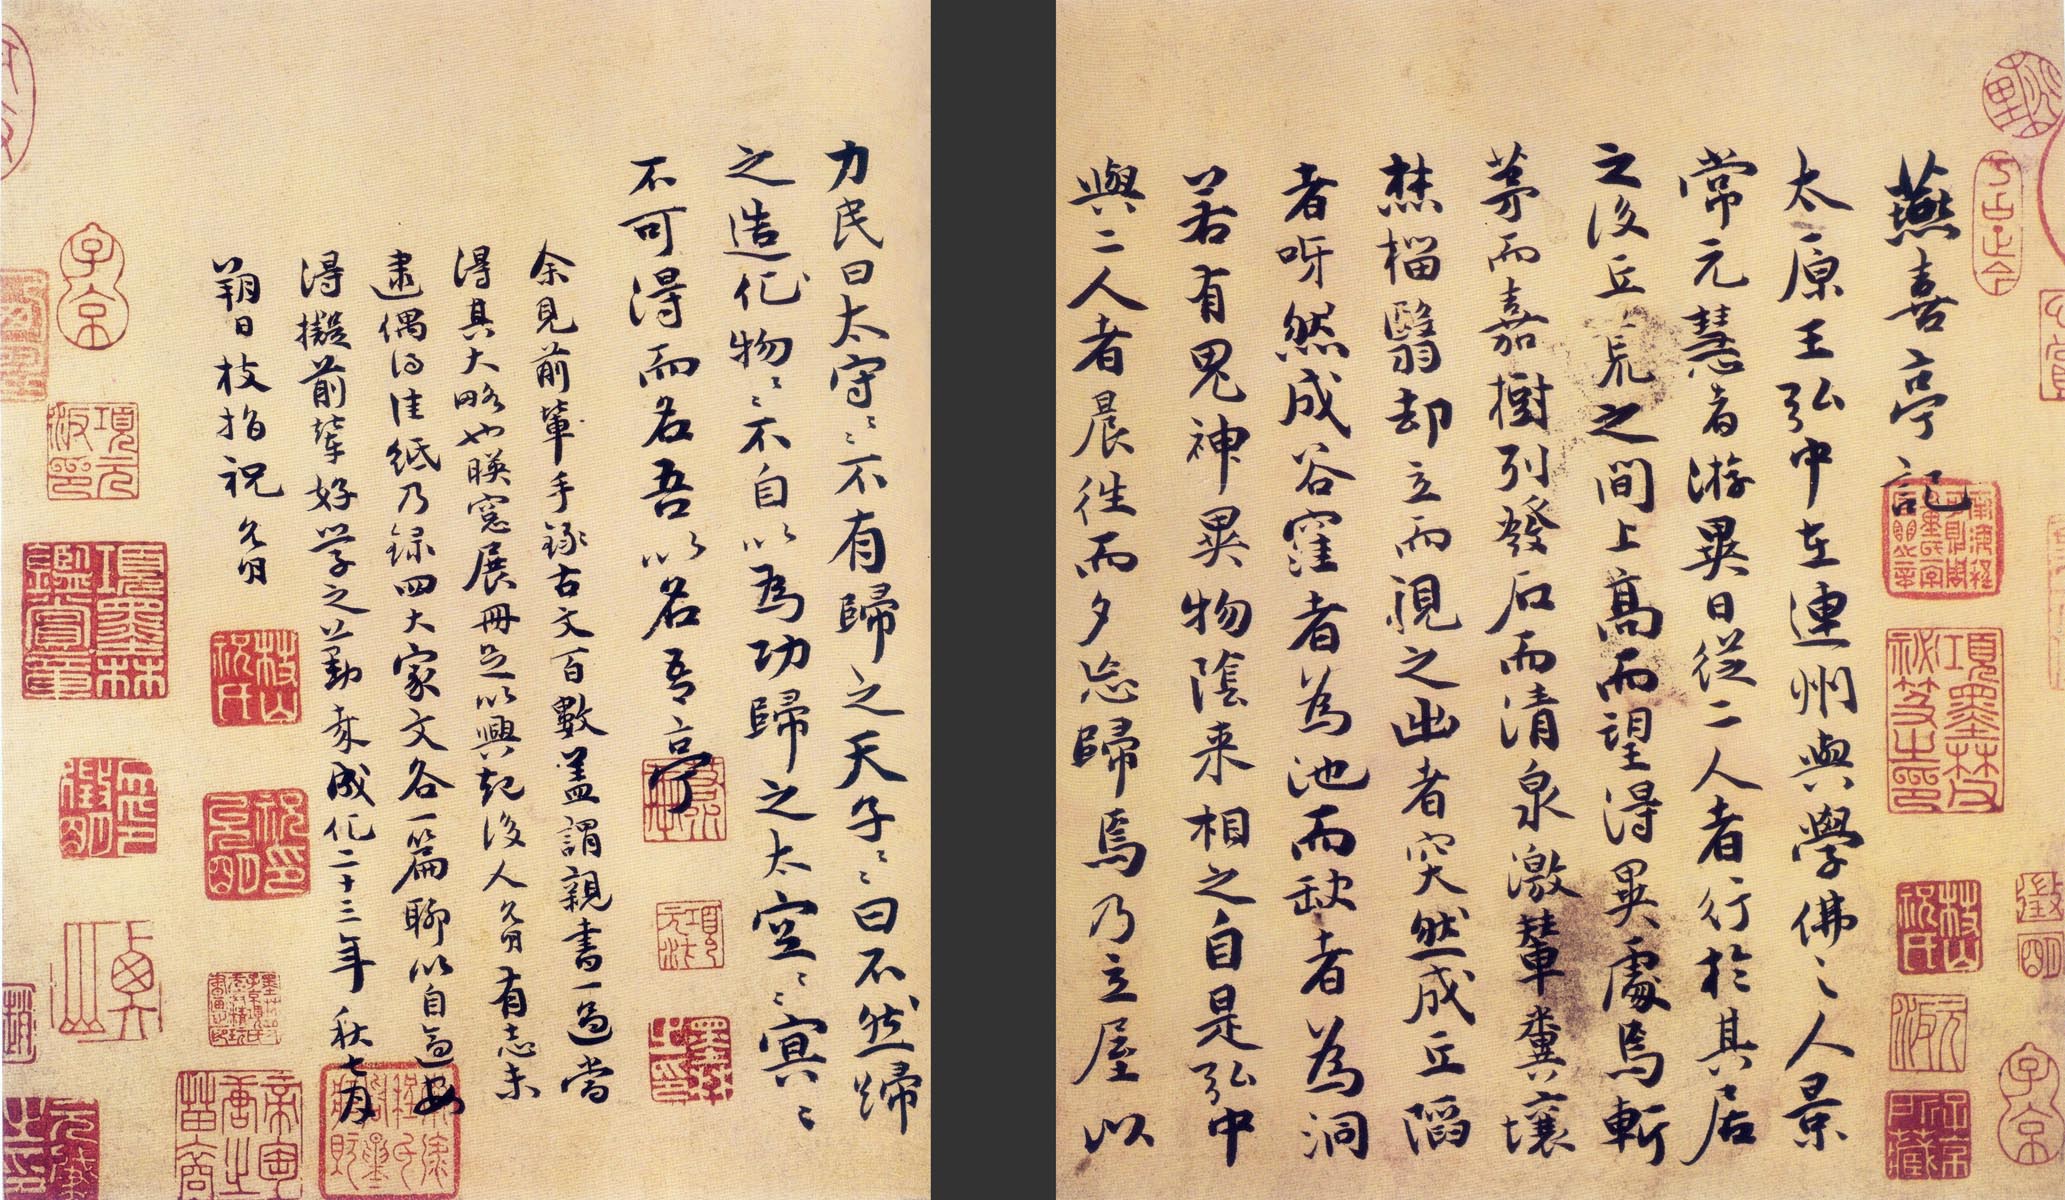 燕喜亭記
太原王弘中在連州與學佛之人景
常元慧者游異日從二人者行於其居
之後丘荒之間上高而望得異處焉斬
茅而嘉樹列發石而清泉激輦糞壤
焚榴翳却立而視之出者突然成丘陷
者呀然成谷窪者為池而缺者為洞
若有鬼神異物陰来相之自是弘中
與二人者晨往而夕忘歸焉乃立屋以
力民曰太守〻〻不有歸之天子〻〻曰不然歸
之造化物〻不自以為功歸之太空〻〻冥〻
不可得而名吾以名吾亭
余見前輩手錄古文百數蓋謂親書一過當
得其大略也暎窓展冊足以興起後人允明有志未
逮偶得佳紙乃録四大家文各一篇聊以自
得擬前輩好學之勤哉成化二十三年秋七月
朔日枝指祝允明
子京
項墨林鑑賞章
枝山祝氏
項元汴印
子京
枝山祝氏
項墨林父秘笈之印